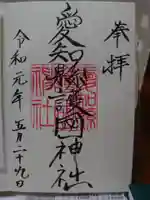 奉拝
愛知縣護國神社
令和元年五月二十九日